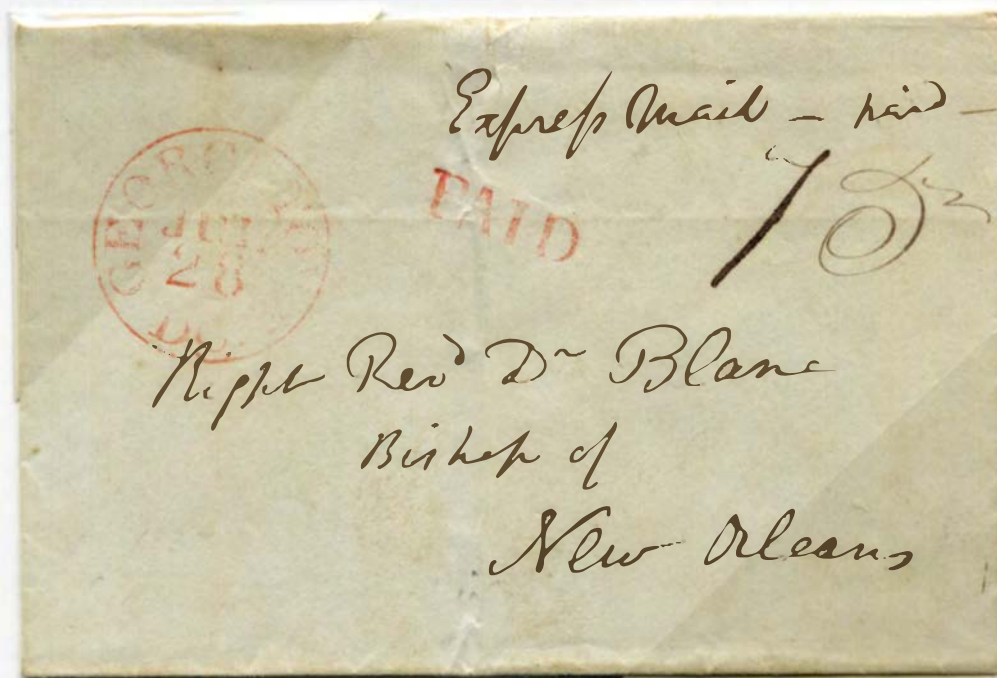 Express Mail – paid –
GEORGETOWN
JUL
28
D.C.
PAID
Right Revd Dr Blanc
Bishop of
New Orleans